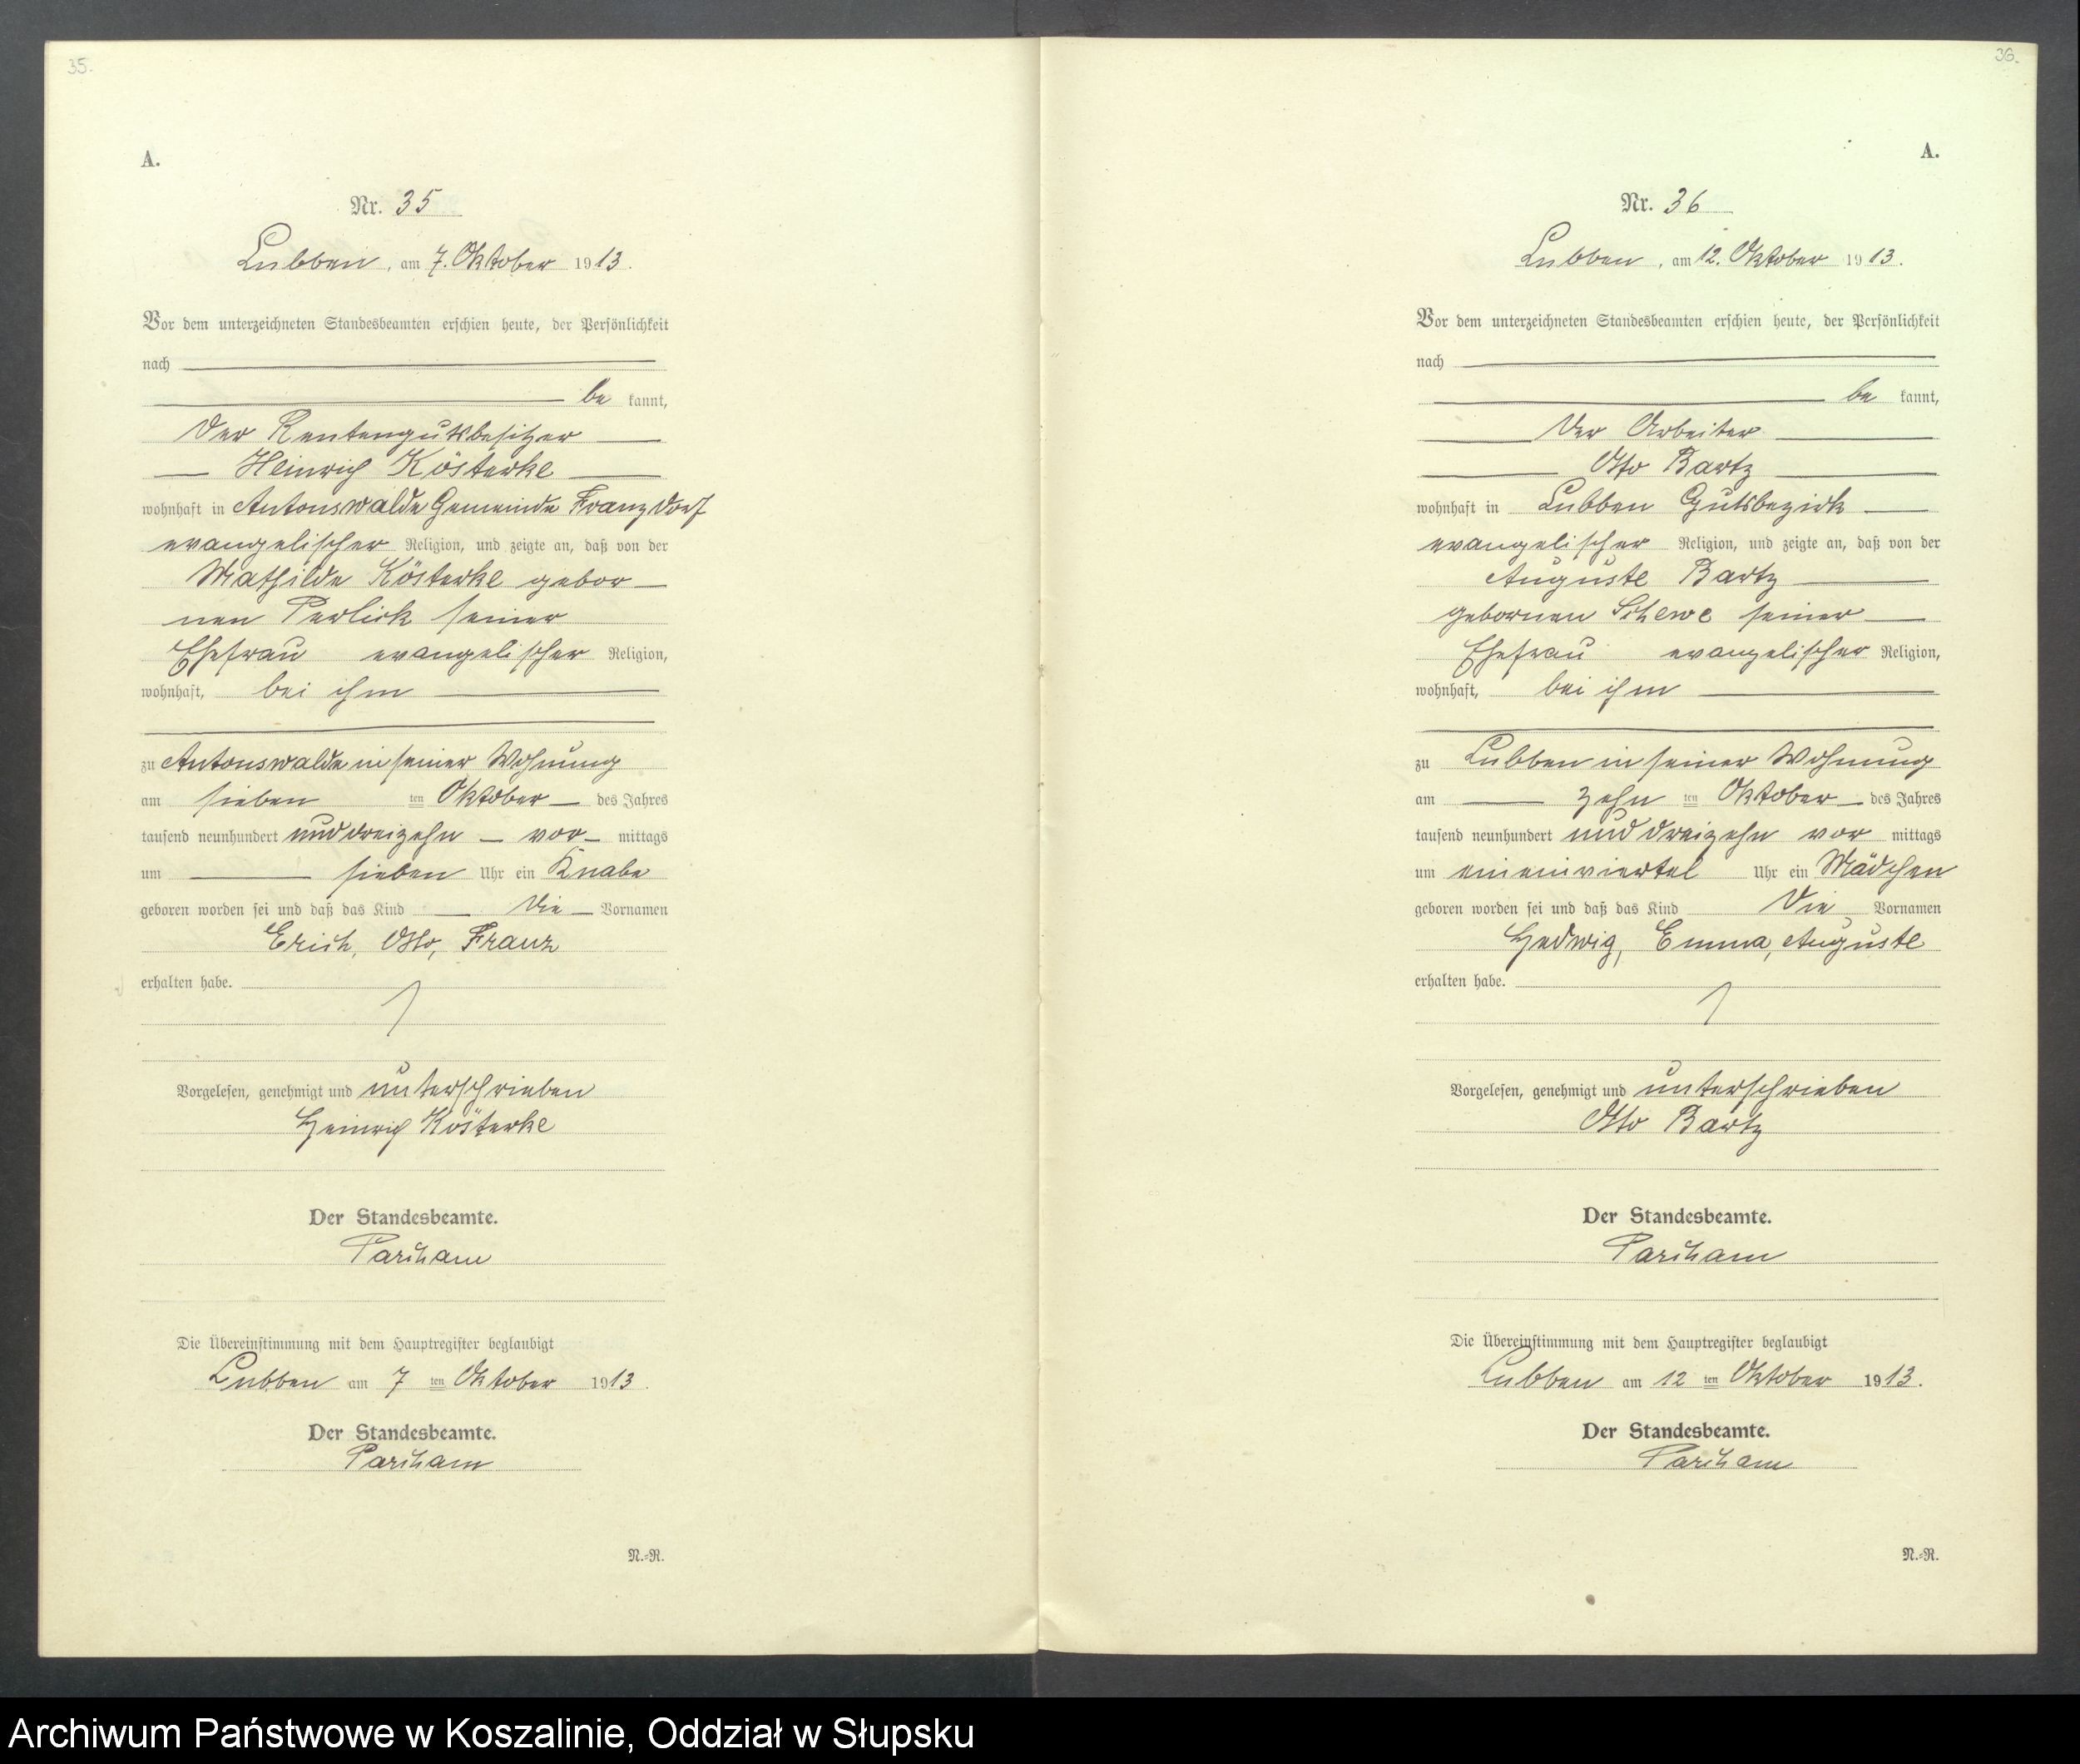 35.
A.
Nr. 35
Lubben, am 7. Oktober 1913.
Vor dem unterzeichneten Standesbeamten erschien heute, der Persönlichkeit
nach
be kannt,
der Rentengutsbesitzer
Heinrich Kösterke
wohnhaft in Antonswalde Gemeinde Franzdorf
evangelischer Religion, und zeigte an, daß von der
Mathilde Kösterke gebor
nen Perlick seiner
Ehefrau evangelischer Religion,
wohnhaft, bei ihm
zu Antonswalde in seiner Wohnung
am sieben ten Oktober des Jahres
tausend neunhundert und dreizehn vor mittags
um sieben Uhr ein Knabe
geboren worden sei und daß das Kind die Vornamen
Erich, Otto, Franz
erhalten habe.
Vorgelesen, genehmigt und unterschrieben
Heinrich Kösterke
Der Standesbeamte.
Parcham
Die Übereinstimmung mit dem Hauptregister beglaubigt
Lubben am 7 ten Oktober 1913.
Der Standesbeamte.
Parcham
N.-R.
36.
A.
Nr. 36
Lubben, am 12. Oktober 1913.
Vor dem unterzeichneten Standesbeamten erschien heute, der Persönlichkeit
nach
be kannt,
der Arbeiter
Otto Bartz
wohnhaft in Lubben Gutsbezirk
evangelischer Religion, und zeigte an, daß von der
Auguste Bartz
gebornen Schewe seiner
Ehefrau evangelischer Religion,
wohnhaft, bei ihm
zu Lubben in seiner Wohnung
am zehn ten Oktober des Jahres
tausend neunhundert und dreizehn vor mittags
um eineinviertel Uhr ein Mädchen
geboren worden sei und daß das Kind die Vornamen
Hedwig, Emma, Auguste
erhalten habe.
Vorgelesen, genehmigt und unterschrieben
Otto Bartz
Der Standesbeamte.
Parcham
Die Übereinstimmung mit dem Hauptregister beglaubigt
Lubben am 12 ten Oktober 1913.
Der Standesbeamte.
Parcham
N.-R.
Archiwum Państwowe w Koszalinie, Oddział w Słupsku